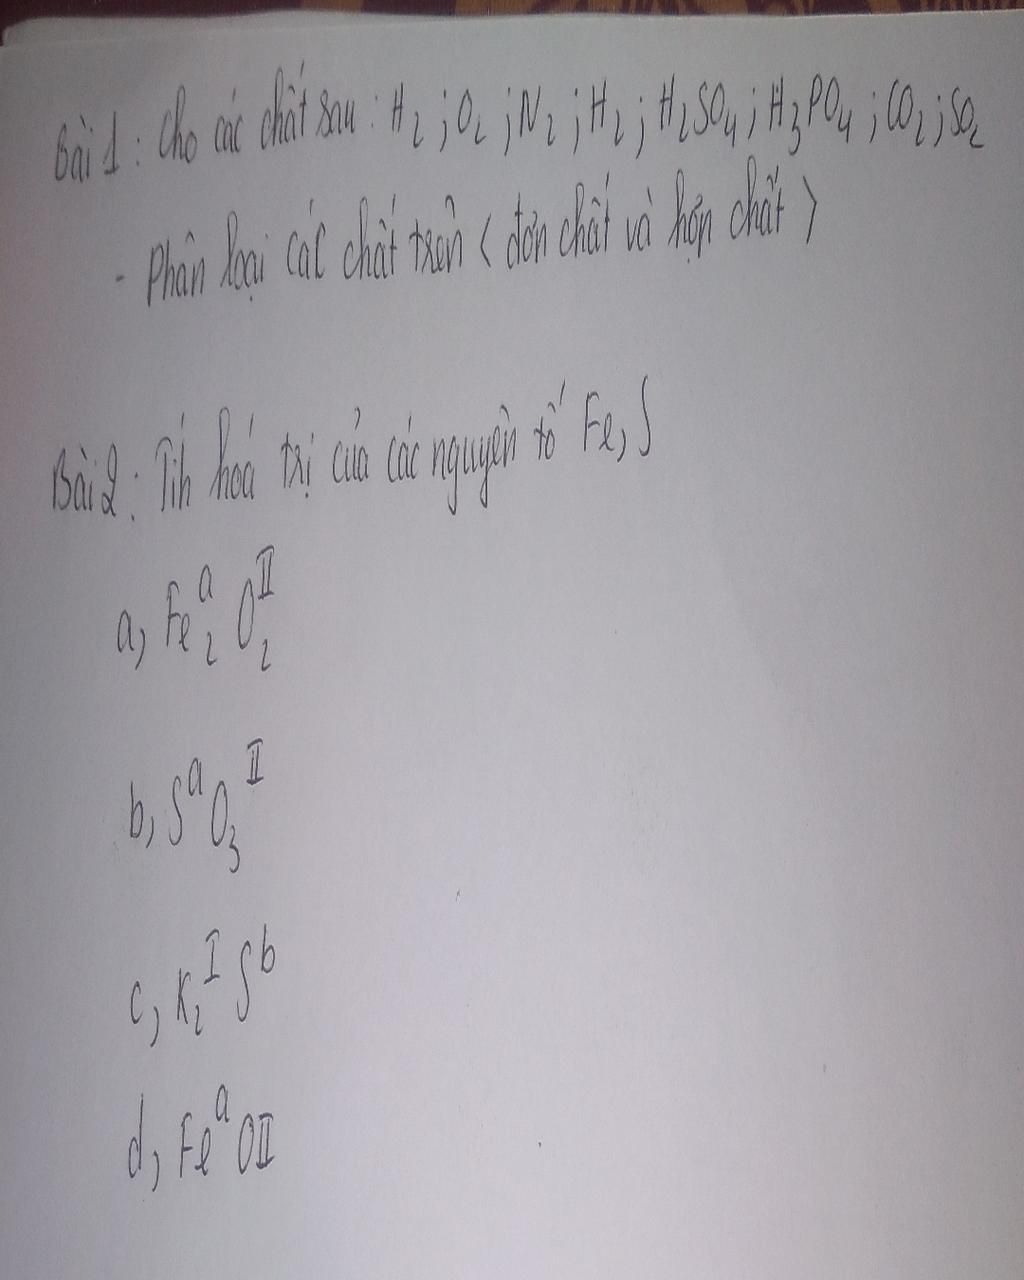 Bài 1: Cho các chất sau: H₂ ; O₂ ; N₂ ; H₂ ; H₂SO₄ ; H₃PO₄ ; CO₂ ; SO₂
- Phân loại các chất trên < đơn chất và hợp chất >
Bài 2: Tíh hoá trị của các nguyên tố Fe, S
a, Fe₂ᵃ O₂ᴵᴵ
b, Sᵃ O₃ᴵᴵ
c, K₂ᴵ Sᵇ
d, Feᵃ OII